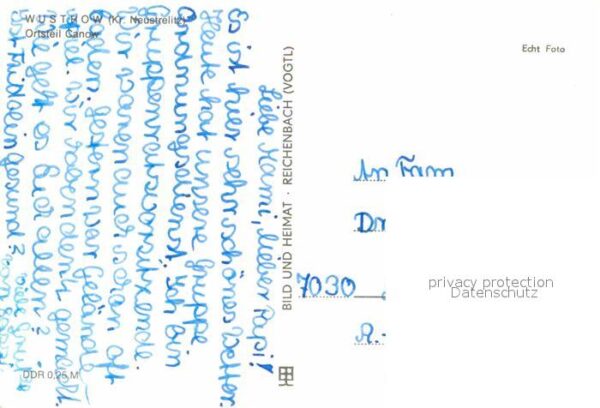 WUSTROW (Kr. Neustrelitz)
Ortsteil Canow
Liebe Mami, lieber Papi!
Es ist hier sehr schönes Wetter.
Heute hat unsere Gruppe
Ordnungsdienst. Ich bin
Gruppenratsvorsitzende.
Wir waren auch schon oft
baden. Gestern war Gelände-
spiel. Wir
Wie geht es euch allen?
Ist gesund?
viele Grüße
DDR 0,25 M
BILD UND HEIMAT · REICHENBACH (VOGTL)
Echt Foto
An Fam
Dr
7030
privacy protection
Datenschutz